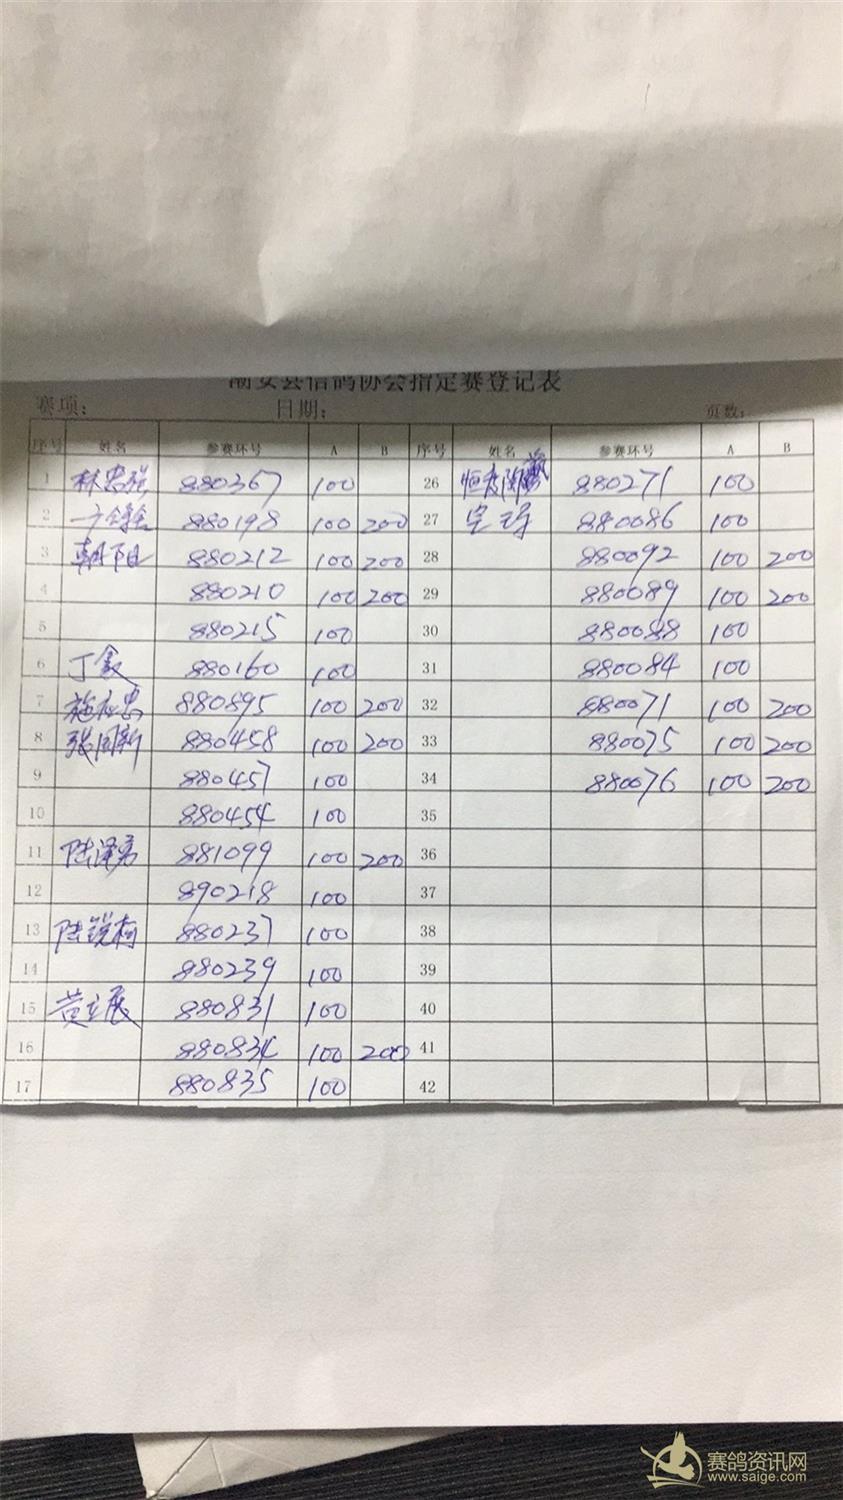 潮安县信鸽协会指定赛登记表
赛项: 日期: 页数:
序号 姓名 参赛环号 A B 序号 姓名 参赛环号 A B
1 林忠强 880367 100 26 880271 100
2 880198 100 200 27 880086 100
3 朝阳 880212 100 200 28 880092 100 200
4 880210 100 200 29 880089 100 200
5 880215 100 30 880088 100
6 丁鑫 880160 100 31 880084 100
7 施应忠 880895 100 200 32 880071 100 200
8 张国新 880458 100 200 33 880075 100 200
9 880457 100 34 880076 100 200
10 880454 100 35
11 陆泽 881099 100 200 36
12 890218 100 37
13 陆锐 880237 100 38
14 880239 100 39
15 黄立展 880831 100 40
16 880834 100 200 41
17 880835 100 42
赛鸽资讯网
www.saige.com